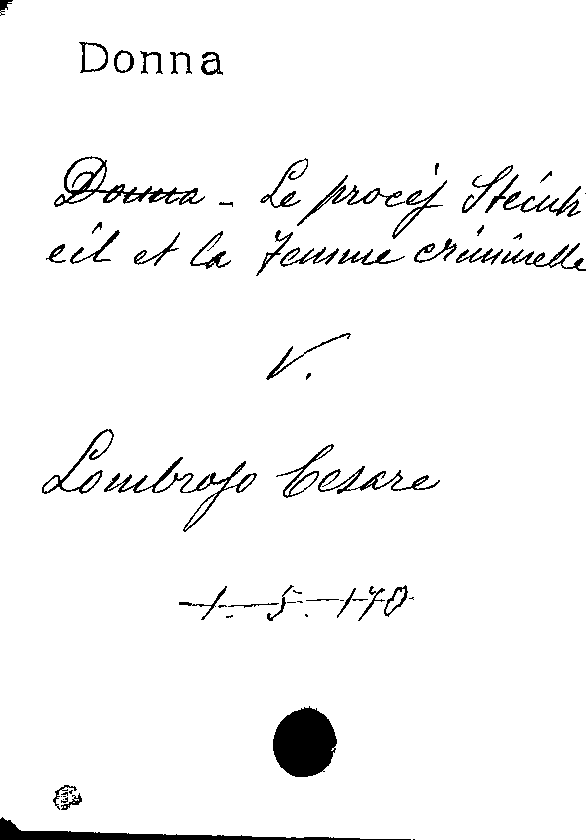 Donna
Donna - Le procès Steinh
eil et la femme criminelle
V.
Lombroso Cesare
1. 5. 170